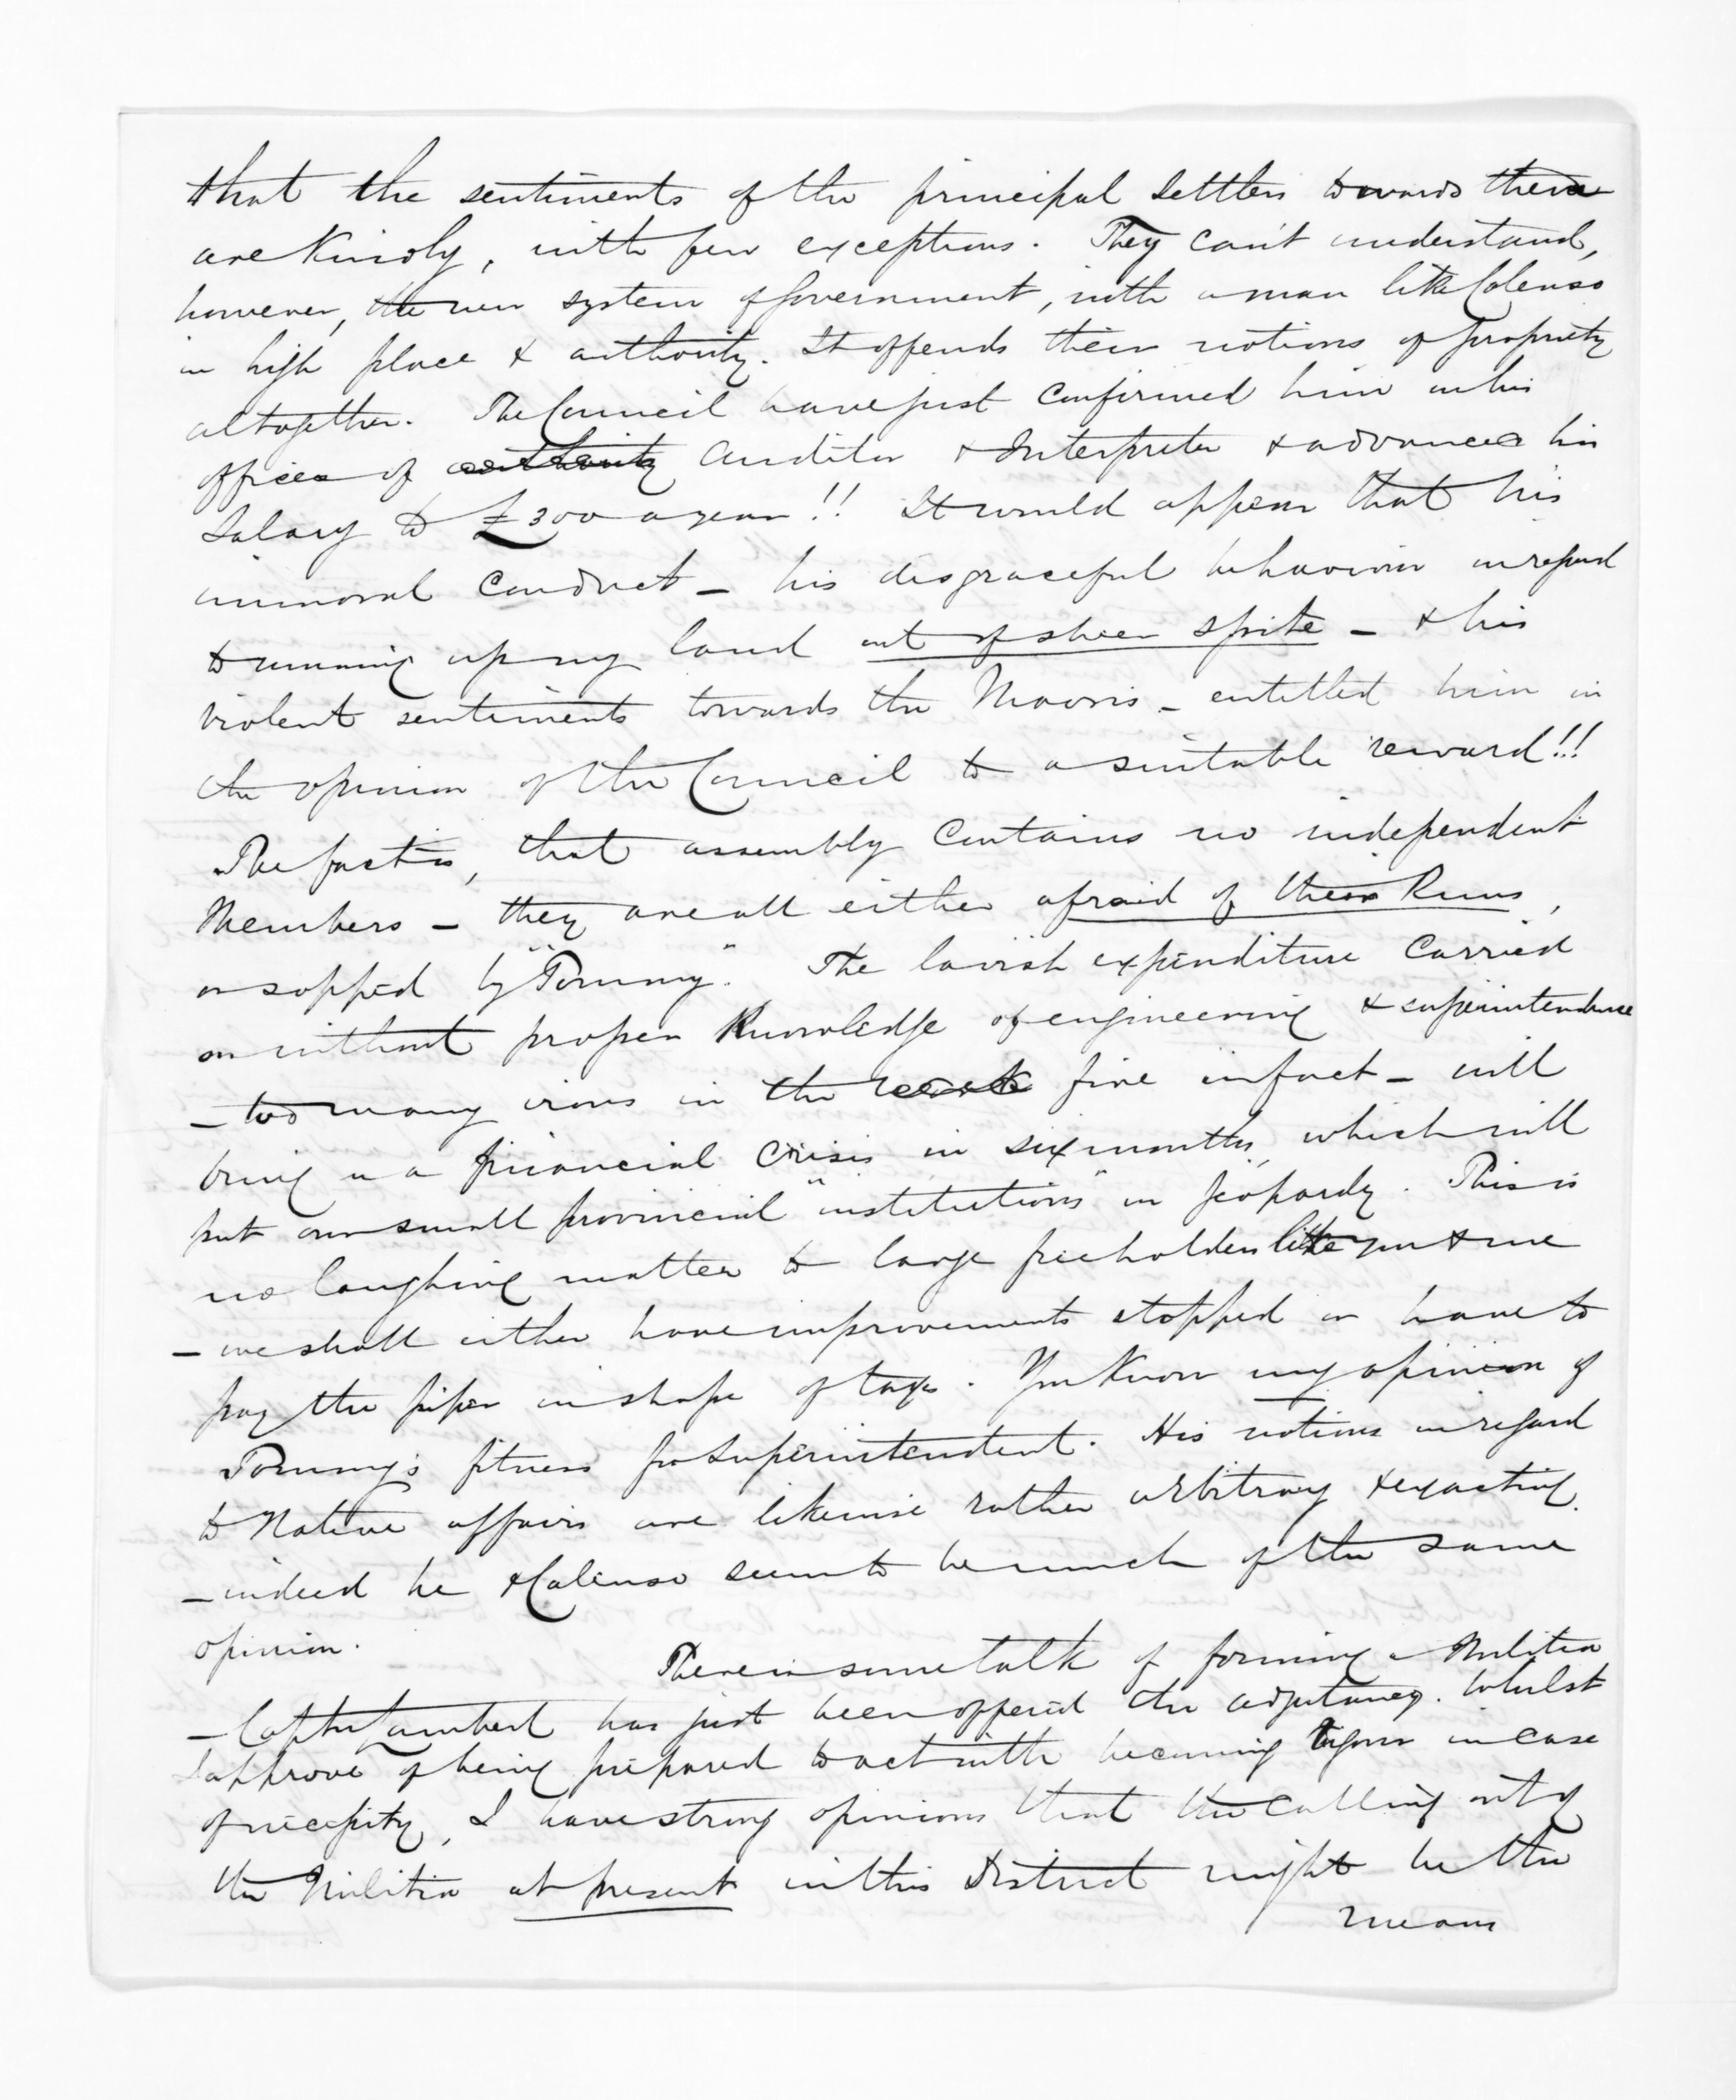 that the sentiments of the principal settlers towards them
are kindly, with few exceptions. They can't understand,
however, the new system of Government, with a man like Colenso
in high place & authority. It offends their notions of propriety
altogether. The Council have just confirmed him in his
offices of authority Auditor & Interpreter & advanced his
Salary to £300 a year!! It would appear that his
immoral conduct – his disgraceful behaviour in regard
to running up my land out of sheer spite – & his
violent sentiments towards the Maoris – entitled him in
the opinion of the Council to a suitable reward!!!
The fact is, that assembly contains no independent
Members – they are all either afraid of their Runs,
or sopped by "Tommy". The lavish expenditure carried
on without proper knowledge of engineering & superintendence
– too many irons in the fire in fact – will
bring on a financial crisis in six months, which will
put our small provincial "institutions" in jeopardy. This is
no laughing matter to large freeholders like you & me
– we shall either have improvements stopped or have to
pay the piper in shape of tax. You know my opinion of
Tommy's fitness for Superintendent. His notions in regard
to Native affairs are likewise rather arbitrary & exacting.
– indeed he & Colenso seem to be much of the same
opinion.
There is some talk of forming a Militia
– Captn Lambert has just been offered the adjutancy. Whilst
I approve of being prepared to act with becoming vigour in case
of necessity, I have strong opinions that the calling out of
the Militia at present in this District might be the
means